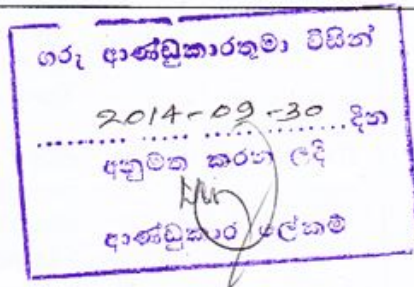 ගරු ආණ්ඩුකාරතුමා විසින්
2014-09-30 දින
අනුමත කරන ලදි
ආණ්ඩුකාර ලේකම්